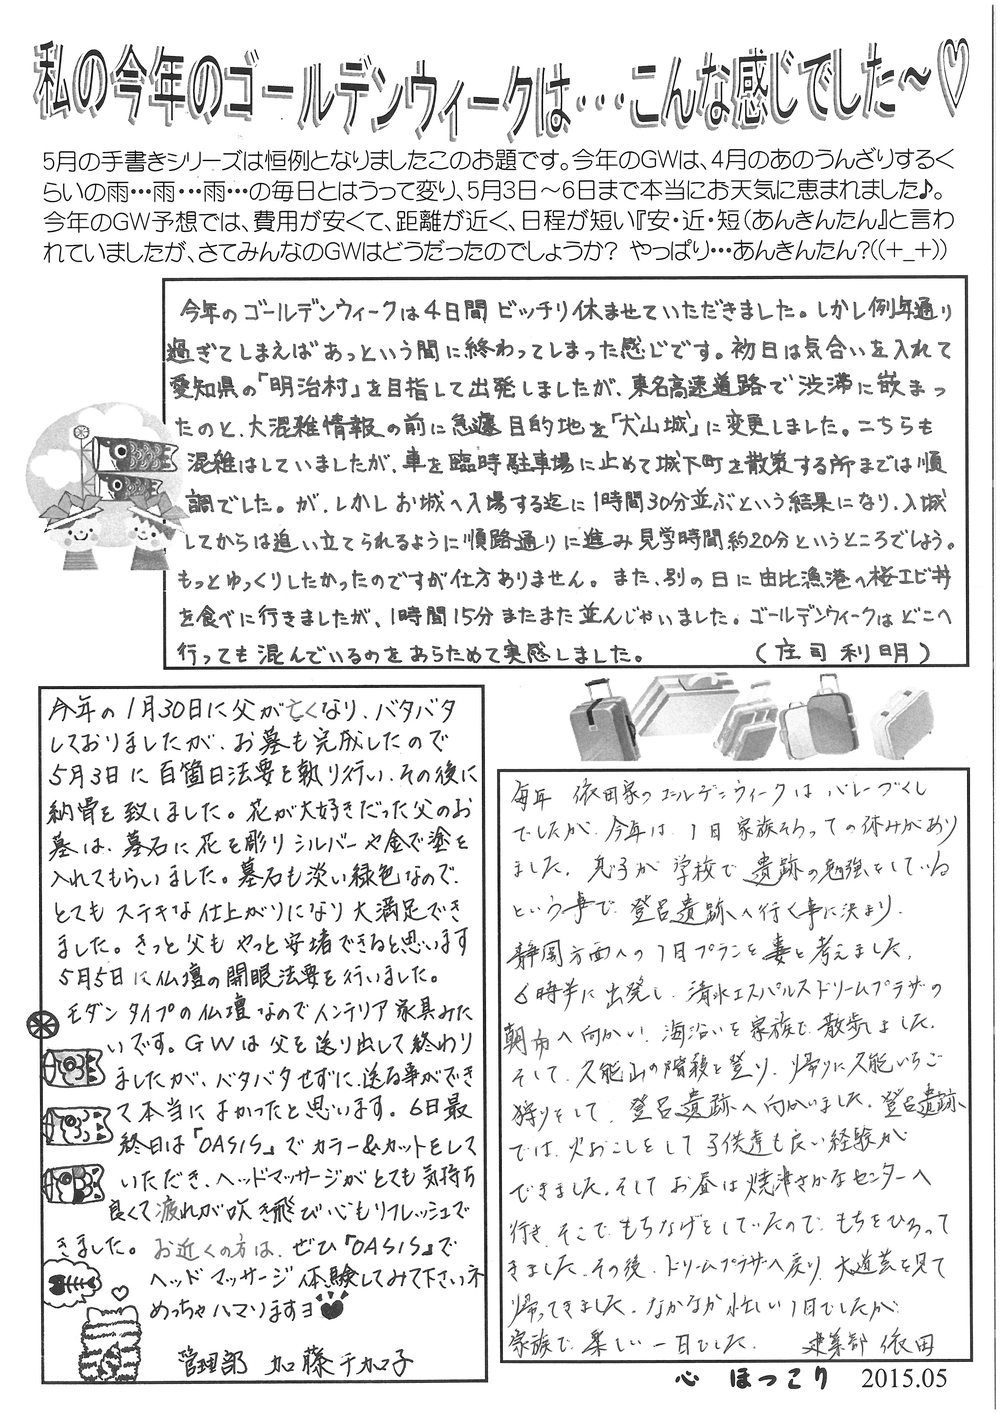 私の今年のゴールデンウィークは・・・こんな感じでした～♡
5月の手書きシリーズは恒例となりましたこのお題です。今年のGWは、4月のあのうんざりするく
らいの雨…雨…雨…の毎日とはうって変り、5月3日～6日まで本当にお天気に恵まれました♪。
今年のGW予想では、費用が安くて、距離が近く、日程が短い『安・近・短（あんきんたん』と言わ
れていましたが、さてみんなのGWはどうだったのでしょうか？ やっぱり…あんきんたん？((+_+))
今年のゴールデンウィークは4日間ビッチリ休ませていただきました。しかし例年通り
過ぎてしまえばあっという間に終わってしまった感じです。初日は気合いを入れて
愛知県の「明治村」を目指して出発しましたが、東名高速道路で渋滞に嵌まっ
たのと、大混雑情報の前に急遽目的地を「犬山城」に変更しました。こちらも
混雑はしていましたが、車を臨時駐車場に止めて城下町を散策する所までは順
調でした。が、しかしお城へ入場する迄に1時間30分並ぶという結果になり、入城
してからは追い立てられるように順路通りに進み見学時間約20分というところでしょう。
もっとゆっくりしたかったのですが仕方ありません。また、別の日に由比漁港へ桜エビ丼
を食べに行きましたが、1時間15分またまた並んじゃいました。ゴールデンウィークはどこへ
行っても混んでいるのをあらためて実感しました。 （庄司利明）
今年の1月30日に父が亡くなり、バタバタ
しておりましたが、お墓も完成したので
5月3日に百箇日法要を執り行い、その後に
納骨を致しました。花が大好きだった父のお
墓は、墓石に花を彫りシルバーや金で塗を
入れてもらいました。墓石も淡い緑色なので、
とてもステキな仕上がりになり大満足でき
ました。きっと父もやっと安堵できると思います
5月5日に仏壇の開眼法要を行いました。
モダンタイプの仏壇なのでインテリア家具みた
いです。GWは父を送り出して終わり
ましたが、バタバタせずに、送る事ができ
て本当によかったと思います。6日最
終日は『OASIS』でカラー&カットをして
いただき、ヘッドマッサージがとても気持ち
良くて疲れが吹き飛び心もリフレッシュで
きました。お近くの方は、ぜひ『OASIS』で
ヘッドマッサージ体験してみて下さいネ
めっちゃハマりますヨ
管理部 加藤千加子
毎年 依田家のゴールデンウィークはバレーづくし
でしたが、今年は、1日家族そろっての休みがあり
ました。息子が学校で遺跡の勉強をしている
という事で、登呂遺跡へ行く事に決まり、
静岡方面への1日プランを妻と考えました。
6時半に出発し、清水エスパルスドリームプラザの
朝市へ向かい、海沿いを家族で散歩しました。
そして、久能山の階段を登り、帰りに久能いちご
狩りをして、登呂遺跡へ向かいました。登呂遺跡
では、火おこしをして子供達も良い経験が
できました。そしてお昼は焼津さかなセンターへ
行き、そこでもちなげをしていたので、もちをひろって
きました。その後、ドリームプラザへ戻り、大道芸を見て
帰ってきました。なかなか忙しい1日でしたが
家族で楽しい一日でした。 建築部 依田
心 ほっこり 2015.05